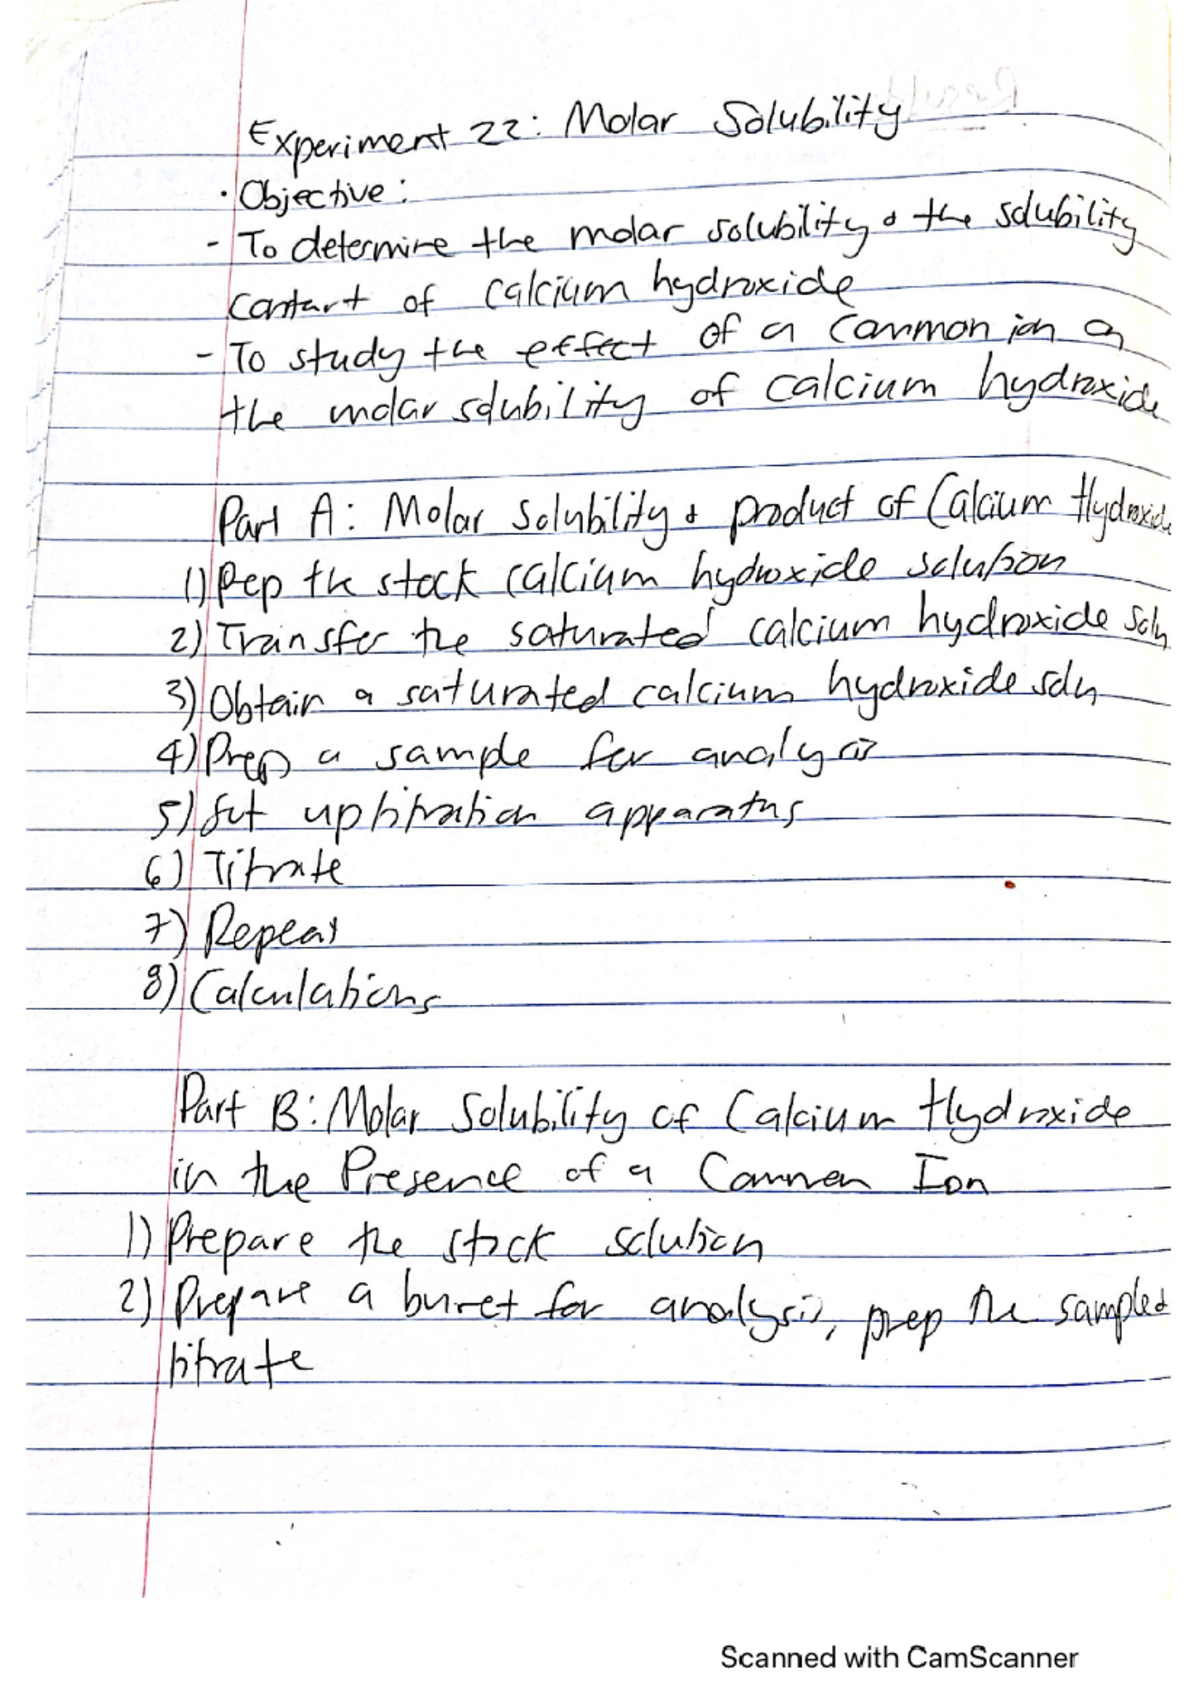 Experiment 22: Molar Solubility
• Objective:
- To determine the molar solubility & the solubility
constant of calcium hydroxide
- To study the effect of a common ion on
the molar solubility of calcium hydroxide
Part A: Molar Solubility & product of Calcium Hydroxide
1) Pep the stock calcium hydroxide solution
2) Transfer the saturated calcium hydroxide soln
3) Obtain a saturated calcium hydroxide soln
4) Prep a sample for analysis
5) Set up titration apparatus
6) Titrate
7) Repeat
8) Calculations
Part B: Molar Solubility of Calcium Hydroxide
in the Presence of a Common Ion
1) Prepare the stock solution
2) Prepare a buret for analysis, prep the sample &
titrate
Scanned with CamScanner